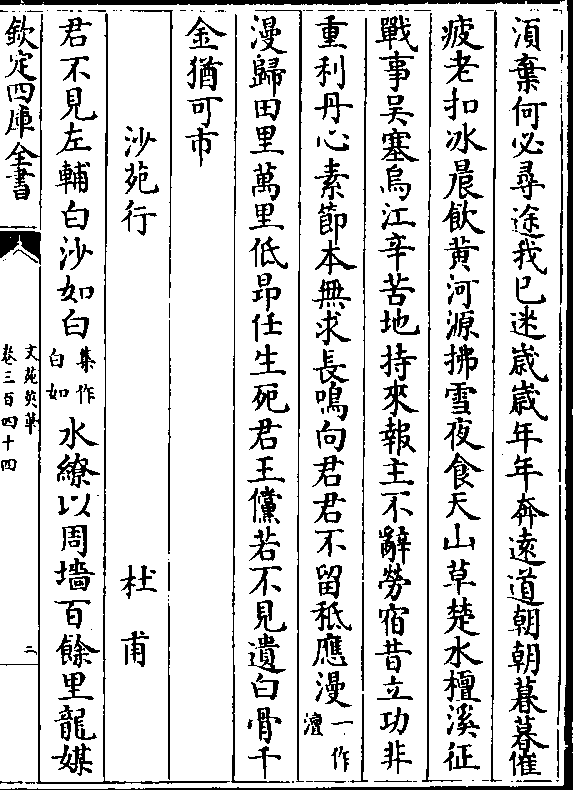 湏棄何必尋途我已迷嵗嵗年年奔遠道朝朝暮暮催
疲老扣冰晨飲黄河源拂雪夜食天山草楚水檀溪征
戰事吴塞烏江辛苦地持來報主不辭勞宿昔立功非
重利丹心素節本無求長鳴向君君不留秪應漫一作澶
漫歸田里萬里低昻任生死君王儻若不見遺白骨千
金猶可市
沙苑行 杜甫
君不見左輔白沙如白集作白如水繚以周墻百餘里龍媒
欽定四庫全書
文苑英華
卷三百四十四
二